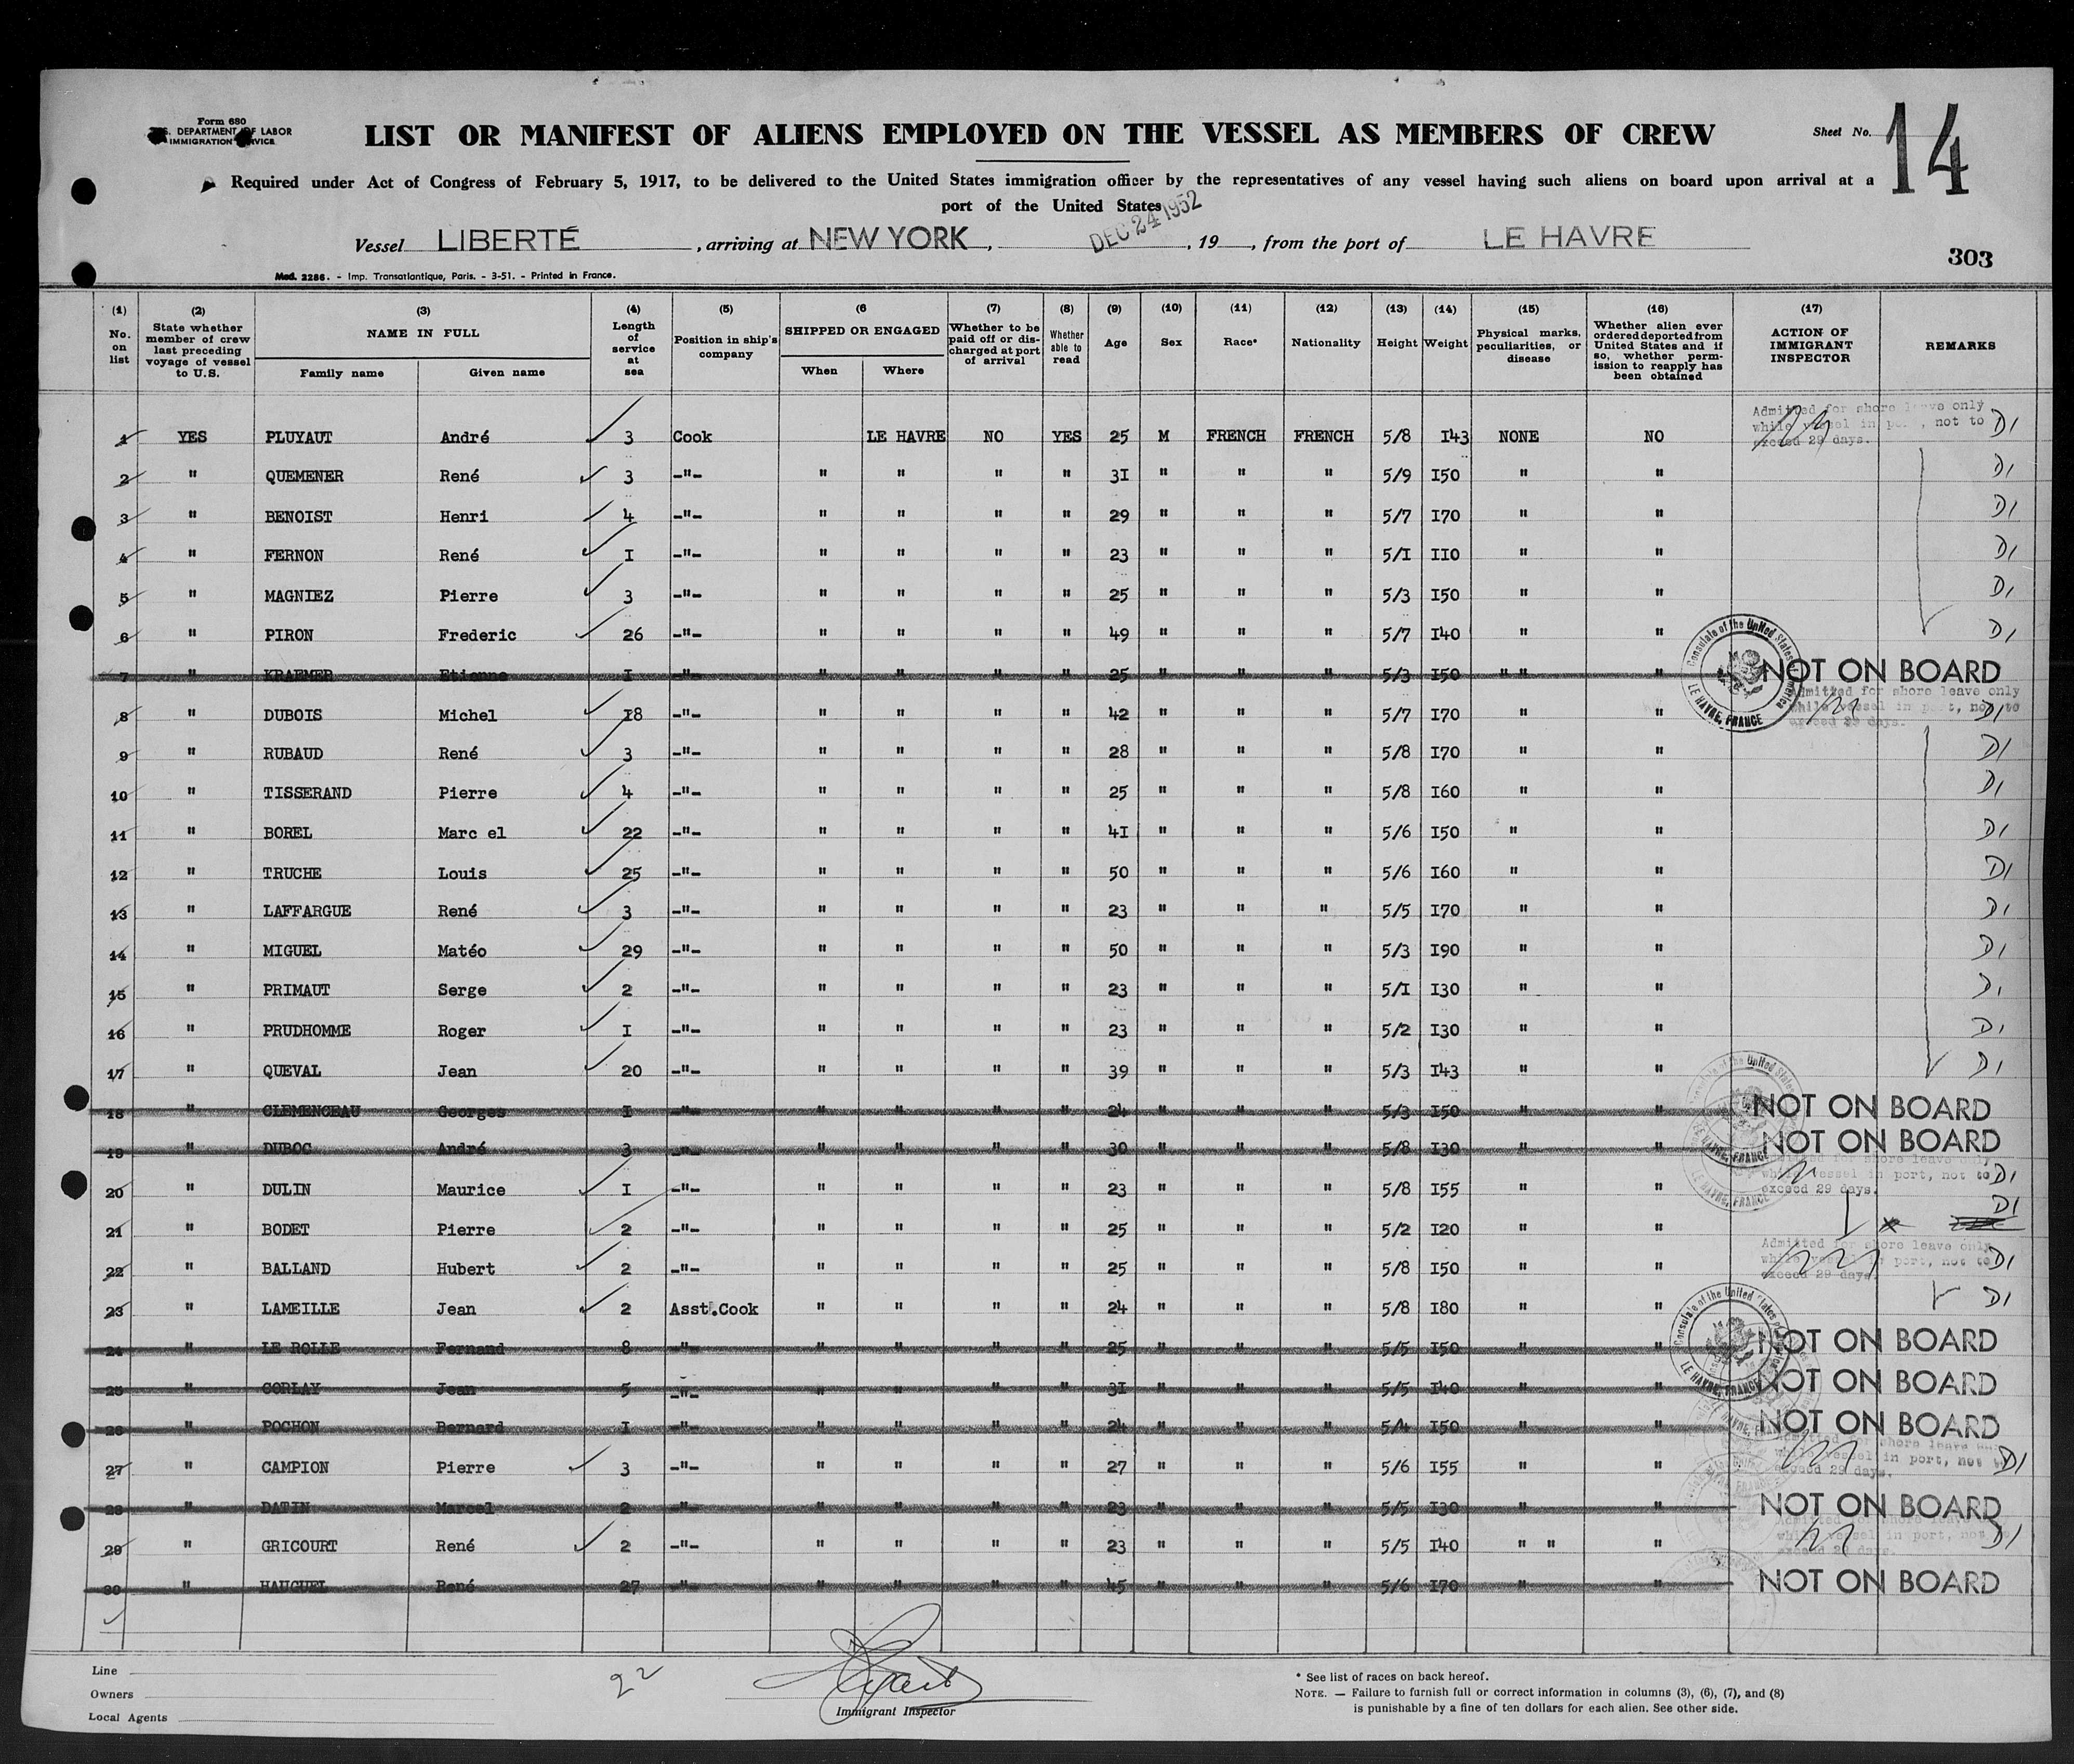 Form 680
U.S. DEPARTMENT OF LABOR
IMMIGRATION SERVICE
LIST OR MANIFEST OF ALIENS EMPLOYED ON THE VESSEL AS MEMBERS OF CREW
Sheet No. 14
Required under Act of Congress of February 5, 1917, to be delivered to the United States immigration officer by the representatives of any vessel having such aliens on board upon arrival at a
port of the United States
Vessel LIBERTÉ, arriving at NEW YORK, DEC 24 1952, 19, from the port of LE HAVRE
303
Mod. 2286. - Imp. Transatlantique, Paris. - 3-51. - Printed in France.
(1) No. on list (2) State whether member of crew last preceding voyage of vessel to U.S. (3) NAME IN FULL Family name Given name (4) Length of service at sea (5) Position in ship's company (6 SHIPPED OR ENGAGED When Where (7) Whether to be paid off or discharged at port of arrival (8) Whether able to read (9) Age (10) Sex (11) Race* (12) Nationality (13) Height (14) Weight (15) Physical marks, peculiarities, or disease (16) Whether alien ever ordered deported from United States and if so, whether permission to reapply has been obtained (17) ACTION OF IMMIGRANT INSPECTOR REMARKS
1 YES PLUYAUT André 3 Cook LE HAVRE NO YES 25 M FRENCH FRENCH 5/8 I43 NONE NO Admitted for shore leave only while vessel in port, not to exceed 29 days. D1
2 " QUEMENER René 3 -"- " " " " 31 " " " 5/9 I50 " " D1
3 " BENOIST Henri 4 -"- " " " " 29 " " " 5/7 I70 " " D1
4 " FERNON René I -"- " " " " 23 " " " 5/I II0 " " D1
5 " MAGNIEZ Pierre 3 -"- " " " " 25 " " " 5/3 I50 " " D1
6 " PIRON Frederic 26 -"- " " " " 49 " " " 5/7 I40 " " D1
7 " KRAEMER Etienne I -"- " " " " 25 " " " 5/3 I50 " " " NOT ON BOARD
8 " DUBOIS Michel I8 -"- " " " " 42 " " " 5/7 I70 " " Admitted for shore leave only while vessel in port, not to exceed 29 days. D1
9 " RUBAUD René 3 -"- " " " " 28 " " " 5/8 I70 " " D1
10 " TISSERAND Pierre 4 -"- " " " " 25 " " " 5/8 I60 " " D1
11 " BOREL Marc el 22 -"- " " " " 4I " " " 5/6 I50 " " D1
12 " TRUCHE Louis 25 -"- " " " " 50 " " " 5/6 I60 " " D1
13 " LAFFARGUE René 3 -"- " " " " 23 " " " 5/5 I70 " " D1
14 " MIGUEL Matéo 29 -"- " " " " 50 " " " 5/3 I90 " " D1
15 " PRIMAUT Serge 2 -"- " " " " 23 " " " 5/I I30 " " D1
16 " PRUDHOMME Roger I -"- " " " " 23 " " " 5/2 I30 " " D1
17 " QUEVAL Jean 20 -"- " " " " 39 " " " 5/3 I43 " " D1
18 " CLEMENCEAU Georges I -"- " " " " 24 " " " 5/3 I50 " " NOT ON BOARD
19 " DUBOC André 3 -"- " " " " 30 " " " 5/8 I30 " " NOT ON BOARD
20 " DULIN Maurice I -"- " " " " 23 " " " 5/8 I55 " " Admitted for shore leave only while vessel in port, not to exceed 29 days. D1
21 " BODET Pierre 2 -"- " " " " 25 " " " 5/2 I20 " " D1
22 " BALLAND Hubert 2 -"- " " " " 25 " " " 5/8 I50 " " Admitted for shore leave only while vessel in port, not to exceed 29 days. D1
23 " LAMEILLE Jean 2 Asst.Cook " " " " 24 " " " 5/8 I80 " " D1
24 " LE ROLLE Fernand 8 -"- " " " " 25 " " " 5/5 I50 " " NOT ON BOARD
25 " CORLAY Jean 5 -"- " " " " 3I " " " 5/5 I40 " " NOT ON BOARD
26 " POCHON Bernard I -"- " " " " 24 " " " 5/4 I50 " " NOT ON BOARD
27 " CAMPION Pierre 3 -"- " " " " 27 " " " 5/6 I55 " " Admitted for shore leave only while vessel in port, not to exceed 29 days. D1
28 " DATIN Marcel 2 -"- " " " " 23 " " " 5/5 I30 " " NOT ON BOARD
29 " GRICOURT René 2 -"- " " " " 23 " " " 5/5 I40 " " " Admitted for shore leave only while vessel in port, not to exceed 29 days. D1
30 " HAUGUEL René 27 -"- " " " " 45 " " " 5/6 I70 " " NOT ON BOARD
Consulate of the United States of America
LE HAVRE, FRANCE
Line
Owners
Local Agents
22
Immigrant Inspector
* See list of races on back hereof.
NOTE. — Failure to furnish full or correct information in columns (3), (6), (7), and (8)
is punishable by a fine of ten dollars for each alien. See other side.